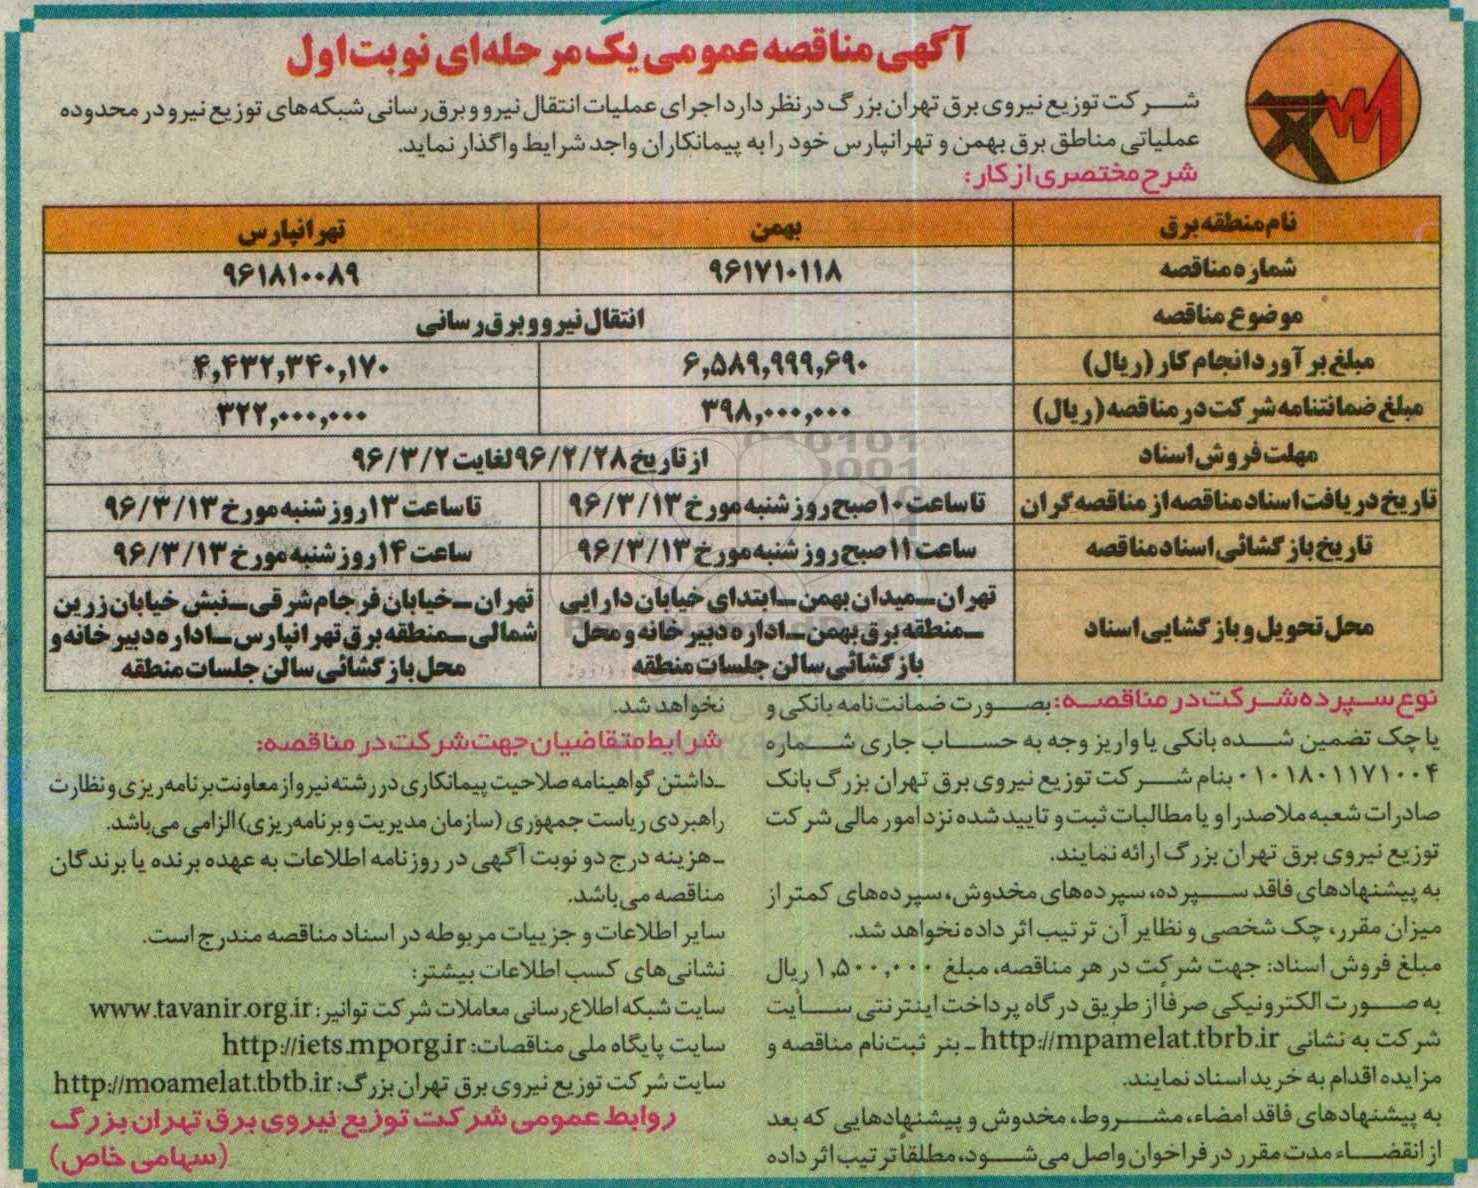 آگهی مناقصه عمومی یک مرحله‌ای نوبت اول
شرکت توزیع نیروی برق تهران بزرگ در نظر دارد اجرای عملیات انتقال نیرو و برق رسانی شبکه‌های توزیع نیرو در محدوده
عملیاتی مناطق برق بهمن و تهرانپارس خود را به پیمانکاران واجد شرایط واگذار نماید.
شرح مختصری از کار:
نام منطقه برق بهمن تهرانپارس
شماره مناقصه ۹۶۱۷۱۰۱۱۸ ۹۶۱۸۱۰۰۸۹
موضوع مناقصه انتقال نیرو و برق رسانی
مبلغ برآورد انجام کار (ریال) ۶,۵۸۹,۹۹۹,۶۹۰ ۴,۴۳۲,۳۴۰,۱۷۰
مبلغ ضمانتنامه شرکت در مناقصه (ریال) ۳۹۸,۰۰۰,۰۰۰ ۳۲۲,۰۰۰,۰۰۰
مهلت فروش اسناد از تاریخ ۹۶/۲/۲۸ لغایت ۹۶/۳/۲
تاریخ دریافت اسناد مناقصه از مناقصه گران تا ساعت ۱۰ صبح روز شنبه مورخ ۹۶/۳/۱۳ تا ساعت ۱۳ روز شنبه مورخ ۹۶/۳/۱۳
تاریخ بازگشائی اسناد مناقصه ساعت ۱۱ صبح روز شنبه مورخ ۹۶/۳/۱۳ ساعت ۱۴ روز شنبه مورخ ۹۶/۳/۱۳
محل تحویل و بازگشایی اسناد
تهران ـ میدان بهمن ـ ابتدای خیابان دارایی
ـ منطقه برق بهمن ـ اداره دبیرخانه و محل
بازگشائی سالن جلسات منطقه
تهران ـ خیابان فرجام شرقی ـ نبش خیابان زرین
شمالی ـ منطقه برق تهرانپارس ـ اداره دبیرخانه و
محل بازگشائی سالن جلسات منطقه
نوع سپرده شرکت در مناقصه: بصورت ضمانت‌نامه بانکی و
یا چک تضمین شده بانکی یا واریز وجه به حساب جاری شماره
۰۱۰۱۸۰۱۱۷۱۰۰۴ بنام شرکت توزیع نیروی برق تهران بزرگ بانک
صادرات شعبه ملاصدرا و یا مطالبات ثبت و تایید شده نزد امور مالی شرکت
توزیع نیروی برق تهران بزرگ ارائه نمایند.
به پیشنهادهای فاقد سپرده، سپرده‌های مخدوش، سپرده‌های کمتر از
میزان مقرر، چک شخصی و نظایر آن ترتیب اثر داده نخواهد شد.
مبلغ فروش اسناد: جهت شرکت در هر مناقصه، مبلغ ۱,۵۰۰,۰۰۰ ریال
به صورت الکترونیکی صرفاً از طریق درگاه پرداخت اینترنتی سایت
شرکت به نشانی http://mpamelat.tbrb.ir ـ بنر ثبت‌نام مناقصه و
مزایده اقدام به خرید اسناد نمایند.
به پیشنهادهای فاقد امضاء، مشروط، مخدوش و پیشنهادهایی که بعد
از انقضاء مدت مقرر در فراخوان واصل می‌شود، مطلقاً ترتیب اثر داده
نخواهد شد.
شرایط متقاضیان جهت شرکت در مناقصه:
ـ داشتن گواهینامه صلاحیت پیمانکاری در رشته نیرو از معاونت برنامه‌ریزی و نظارت
راهبردی ریاست جمهوری (سازمان مدیریت و برنامه‌ریزی) الزامی می‌باشد.
ـ هزینه درج دو نوبت آگهی در روزنامه اطلاعات به عهده برنده یا برندگان
مناقصه می‌باشد.
سایر اطلاعات و جزییات مربوطه در اسناد مناقصه مندرج است.
نشانی‌های کسب اطلاعات بیشتر:
سایت شبکه اطلاع‌رسانی معاملات شرکت توانیر: www.tavanir.org.ir
سایت پایگاه ملی مناقصات: http://iets.mporg.ir
سایت شرکت توزیع نیروی برق تهران بزرگ: http://moamelat.tbtb.ir
روابط عمومی شرکت توزیع نیروی برق تهران بزرگ
(سهامی خاص)